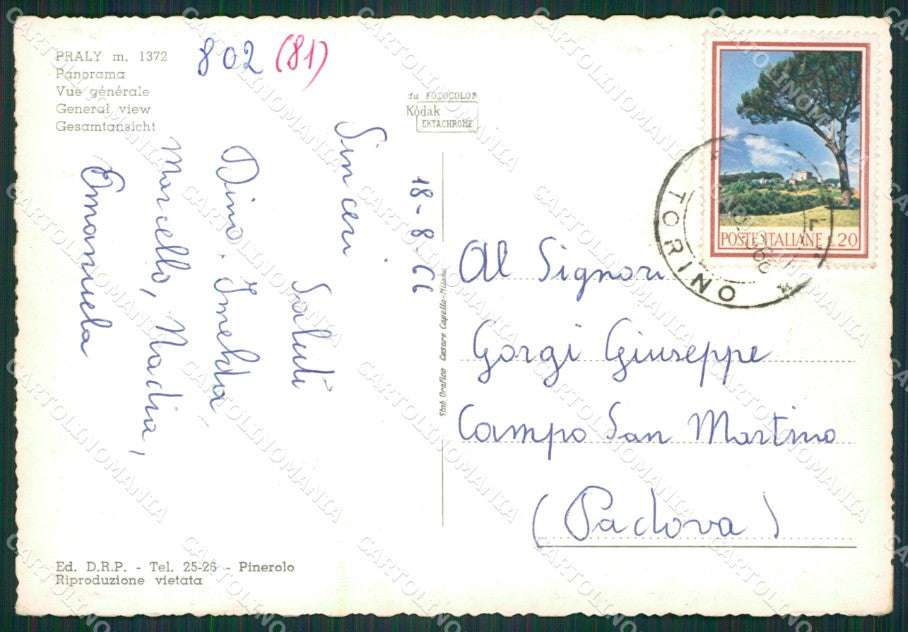 PRALY m. 1372
Panorama
Vue générale
General view
Gesamtansicht
802 (81)
da FOTOCOLOR
Kodak
EKTACHROME
18-8-66
Sinceri
Saluti
Dino. Imelda
Marcello, Nadia,
Emanuela
Stab. Grafico Cesare Capello-Milano
POSTE ITALIANE L.20
TORINO
Al Signori
Gorgi Giuseppe
Campo San Martino
(Padova)
Ed. D.R.P. - Tel. 25-26 - Pinerolo
Riproduzione vietata
CARTOLINOMANIA